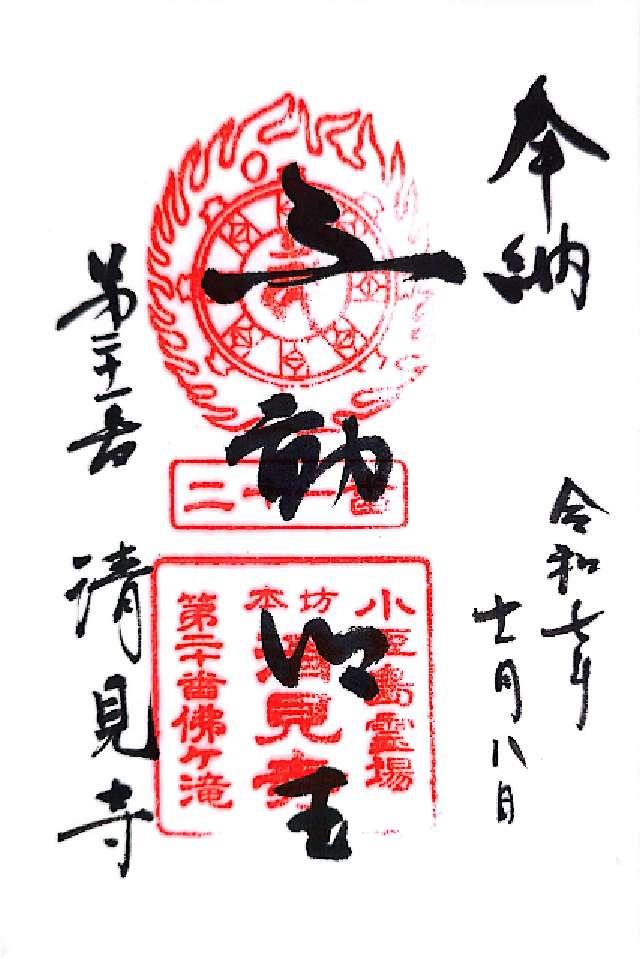 奉納
令和七年
十一月八日
不動明王
第二十一番
清見寺
二十一番
小豆島霊場
本坊
清見寺
第二十番佛ヶ滝